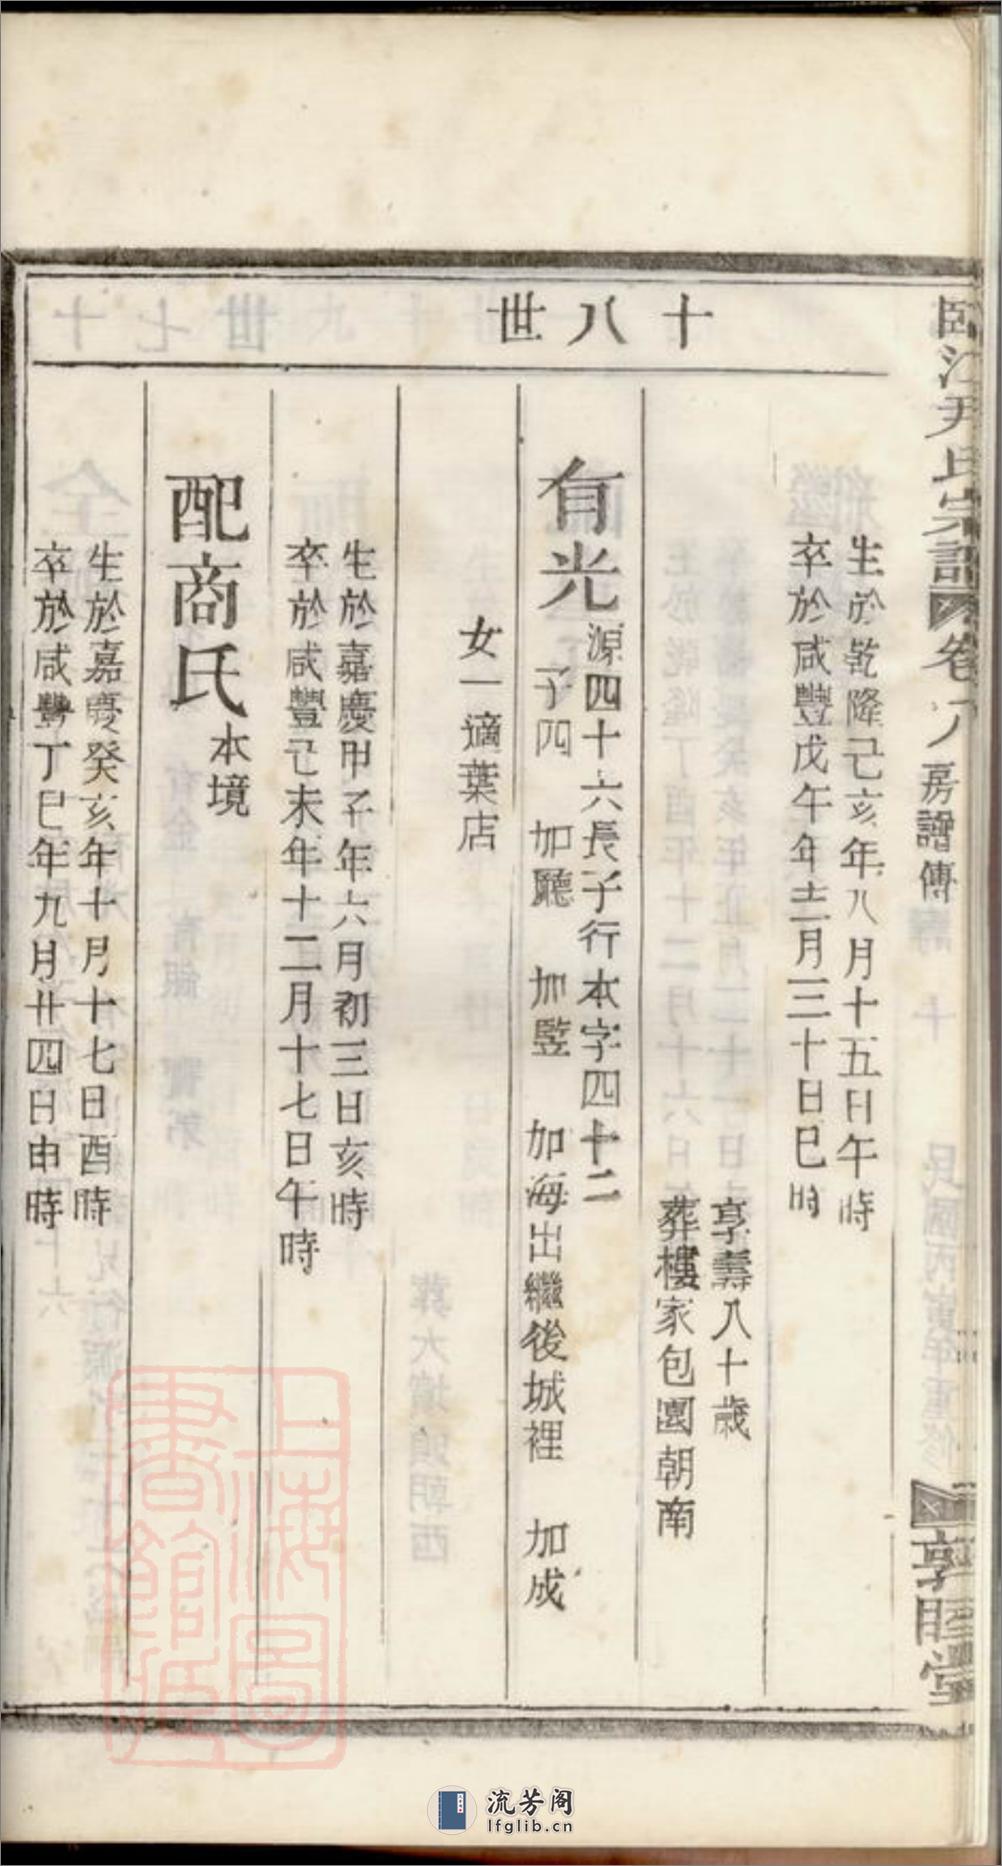 臨江尹氏宗譜
卷八
房譜傳
敦睦堂
十八世
生於乾隆己亥年八月十五日午時
卒於咸豐戊午年十二月三十日巳時
享壽八十歲
葬樓家包園朝南
有光
源四十六長子行本字四十二
子四 加廳 加監 加海出繼後城裡 加成
女一適葉店
生於嘉慶甲子年六月初三日亥時
卒於咸豐己未年十二月十七日午時
配商氏
本境
生於嘉慶癸亥年十月十七日酉時
卒於咸豐丁巳年九月廿四日申時
上海圖書館藏
流芳阁
lfglib.cn